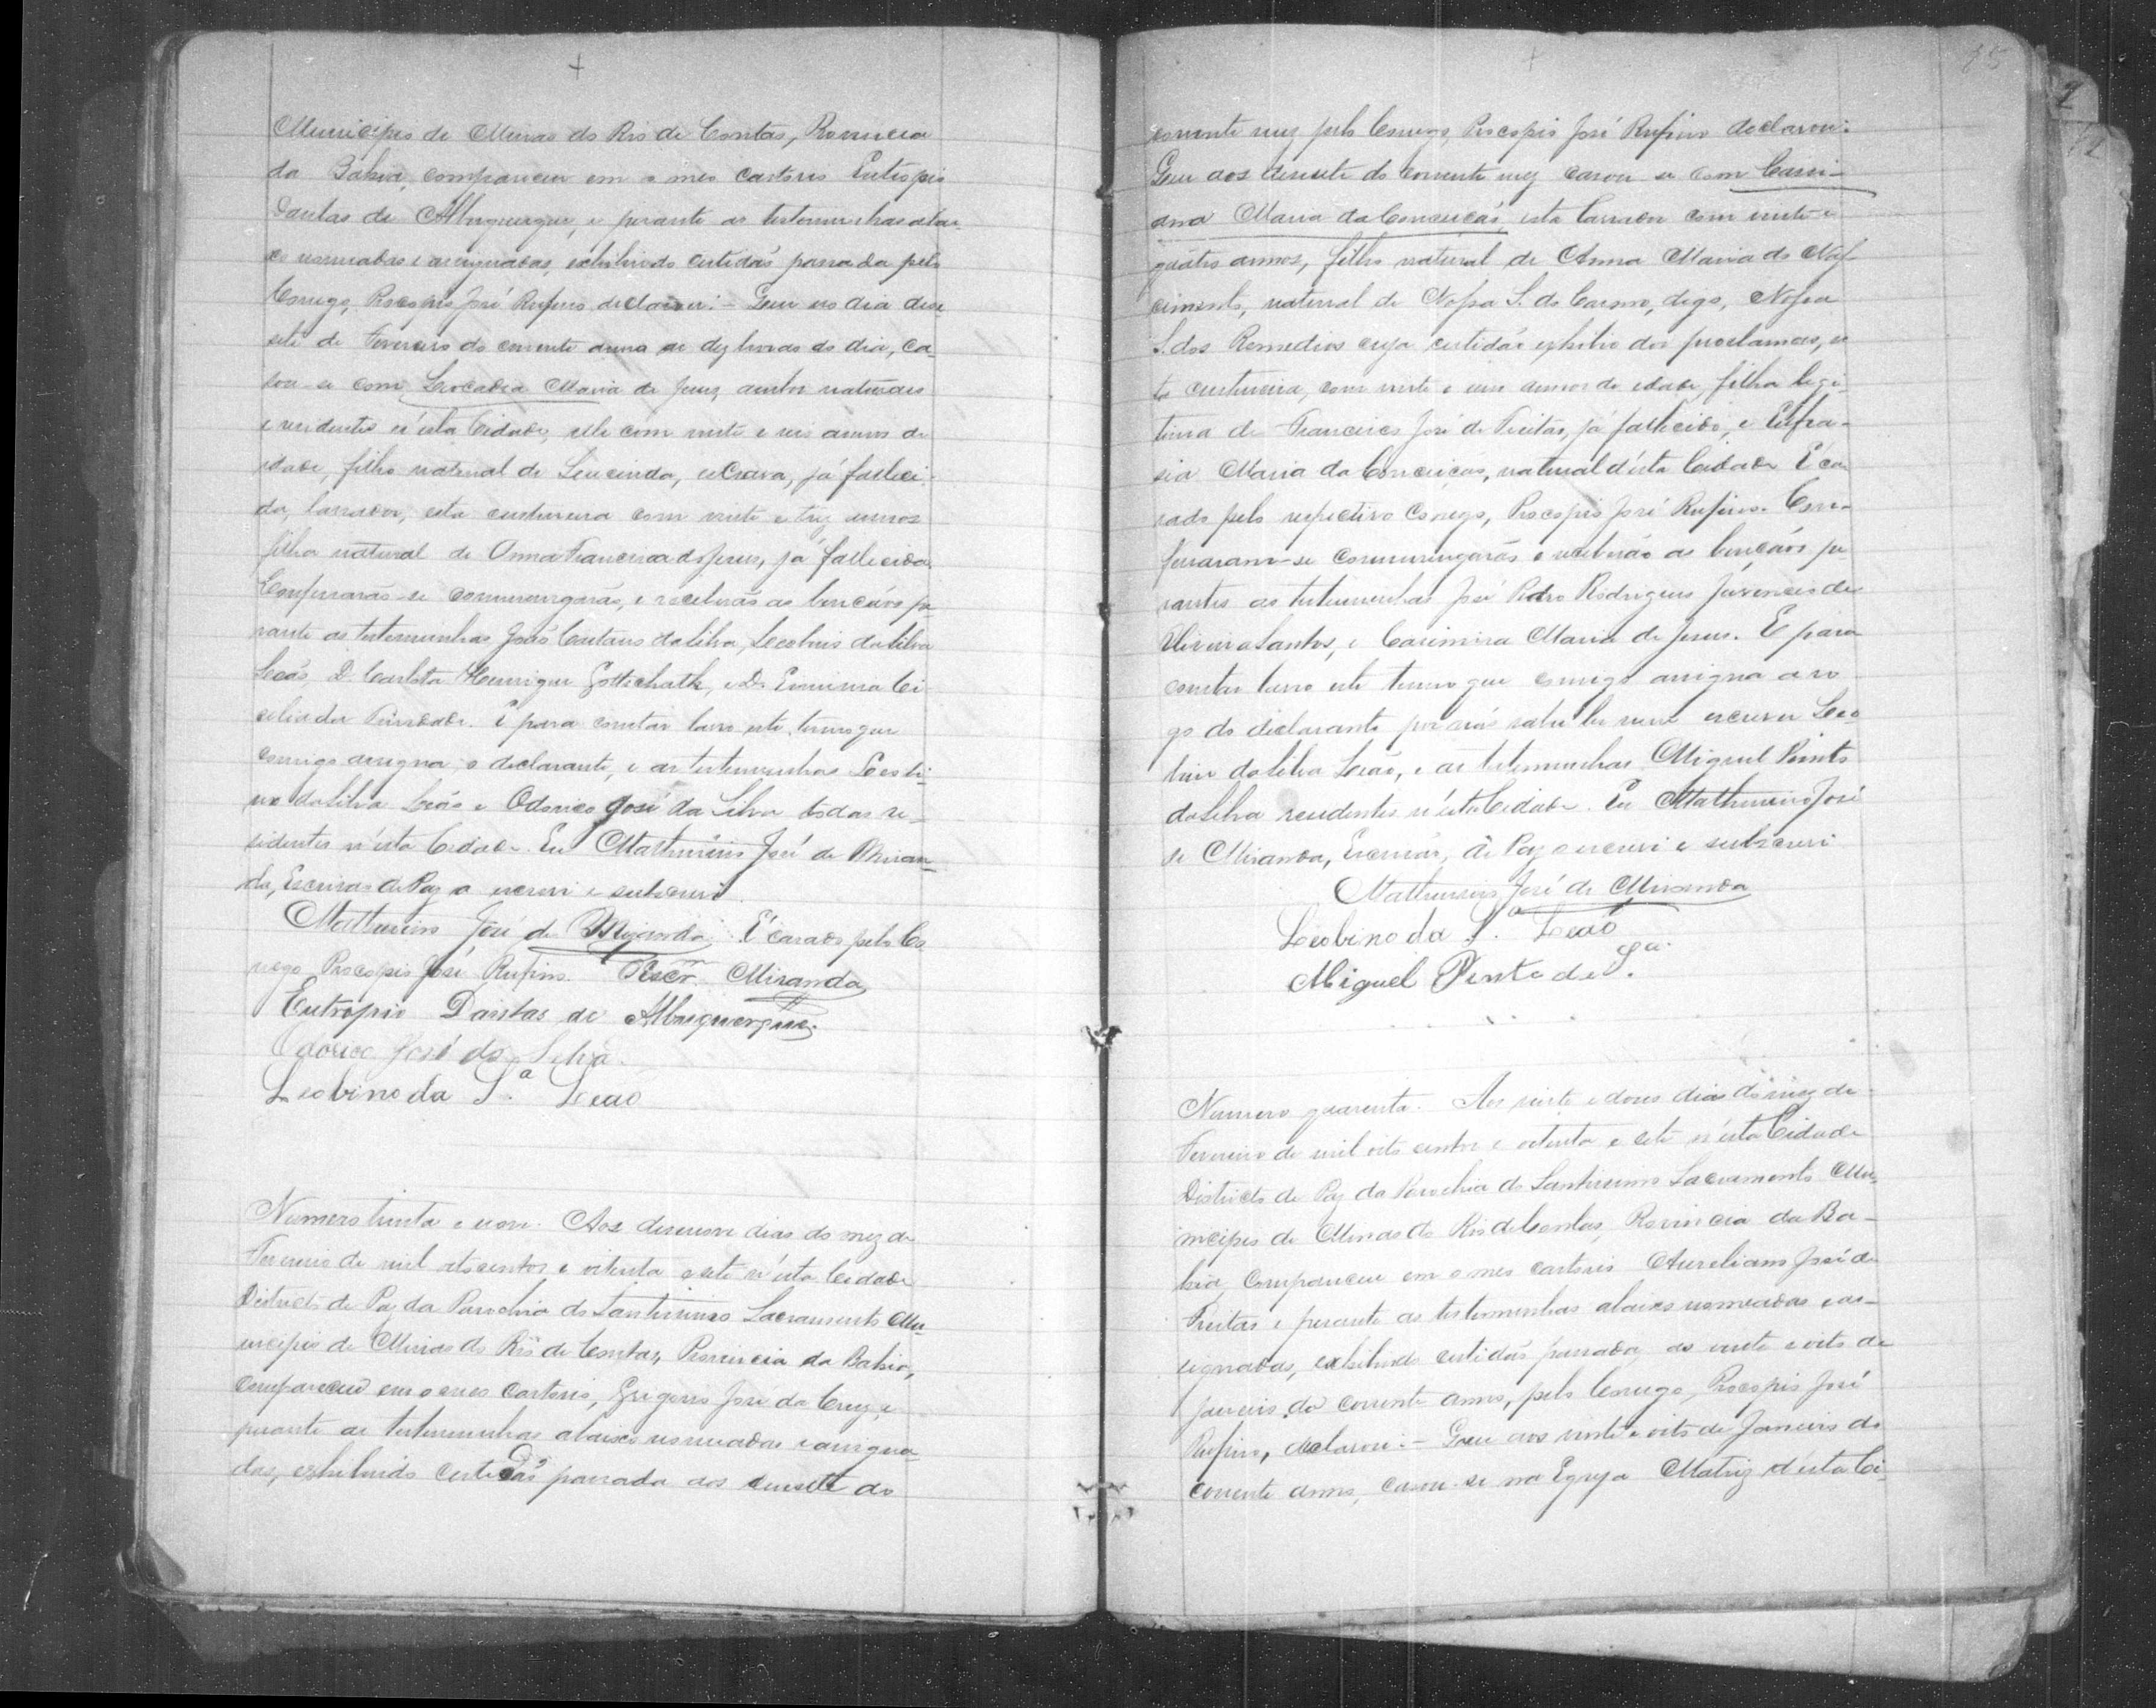 Municipio de Minas do Rio de Contas, Provincia
da Bahia, compareceu em o meo cartorio Eutropio
Dantas de Albuquerque, e perante as testemunhas abai-
xo nomeadas e assignadas, exhibindo certidão passada pelo
Conego, Procopio José Rufino declarou: - Que no dia dese
sete de Fevereiro do corrente anno as dez horas do dia, ca-
sou-se com Leocadia Maria de Jesus, ambos naturaes
e residentes n'esta Cidade, elle com vinte e seis annos de
idade, filho natural de Leucinda, escrava, já falleci-
da, lavrador, esta custureira com vinte e trez annos
filha natural de Anna Francisca de Jesus, já fallecida.
Confessarão-se commungarão, e receberão as bençãos pe-
rante as testemunhas João Caetano da Silva, Leobino da Silva
Leão D. Carlota Henrique Gottschalk, e D. Ermina Ci-
silia da Trindade. E para constar lavro este termo que
comigo assigna, o declarante, e as testemunhas Leobi-
no da Silva Leão e Odorico José da Silva todas re-
sidentes n'esta Cidade. Eu Mathurino José de Miran-
da, Escrivão de Paz o escrevi e subscrevi
Mathurino José de Miranda. É casado pelo Co
nego Procopio José Rufino. Escr.m Miranda
Eutropio Dantas de Albuquerque.
Odorico José da Silva.
Leobino da S.a Leão
Numero trinta e nove. Aos desenove dias do mez de
Fevereiro de mil oitocentos e oitenta e sete n'esta Cidade
Districto de Paz da Parochia do Santissimo Sacramento Mu-
nicipio de Minas do Rio de Contas, Provincia da Bahia,
compareceu em o meo Cartorio, Grigorio José da Cruz, e
perante as testemunhas abaixo nomeadas e assigna-
das, exhibindo certidão passada aos desesete do
85
corrente mez pelo Conego, Procopio José Rufino declarou:
Que aos desesete do corrente mez casou-se com Cassi-
ana Maria da Conceição, este lavrador com vinte e
quatro annos, filho natural de Anna Maria do Nas-
cimento, natural de Nossa S. do Carmo, digo, Nossa
S. dos Remedios cuja certidão exhibio dos proclamas, es-
ta custureira, com vinte e um annos de idade, filha legi-
tima de Francisco José de Freitas, já fallecido, e Eufra-
sia Maria da Conceição, natural d'esta Cidade É ca-
sado pelo respectivo Conego, Procopio José Rufino. Con-
fessaram-se commungarão e receberão as bençãos pe-
rantes as testemunhas José Pedro Rodrigues Juvencio de
Oliveira Santos, e Casimira Maria de Jesus. E para
constar lavro este termo que comigo assigna a ro-
go do declarante por não saber ler nem escrever Leo-
bino da Silva Leão, e as testemunhas Miguel Pinto
da Silva residentes n'esta Cidade. Eu Mathurino José
de Miranda, Escrivão, de Paz o escrevi e subscrevi
Mathurino José de Miranda
Leobino da S.a Leão
Miguel Pinto da S.a
Numero quarenta. Aos vinte e dous dias do mez de
Fevereiro de mil oito centos e oitenta e sete n'esta Cidade
Districto de Paz da Parochia do Santissimo Sacramento Mu-
nicipio de Minas do Rio de Contas, Provincia da Ba-
hia, compareceu em o meo cartorio Aureliano José de
Freitas e perante as testemunhas abaixo nomeadas e as-
signadas, exhibindo certidão passada, as vinte e oito de
Janeiro do corrente anno, pelo Conego, Procopio José
Rufino, declarou: - Que aos vinte e oito de Janeiro do
corrente anno, casou-se na Egreja Matriz d'esta Ci-